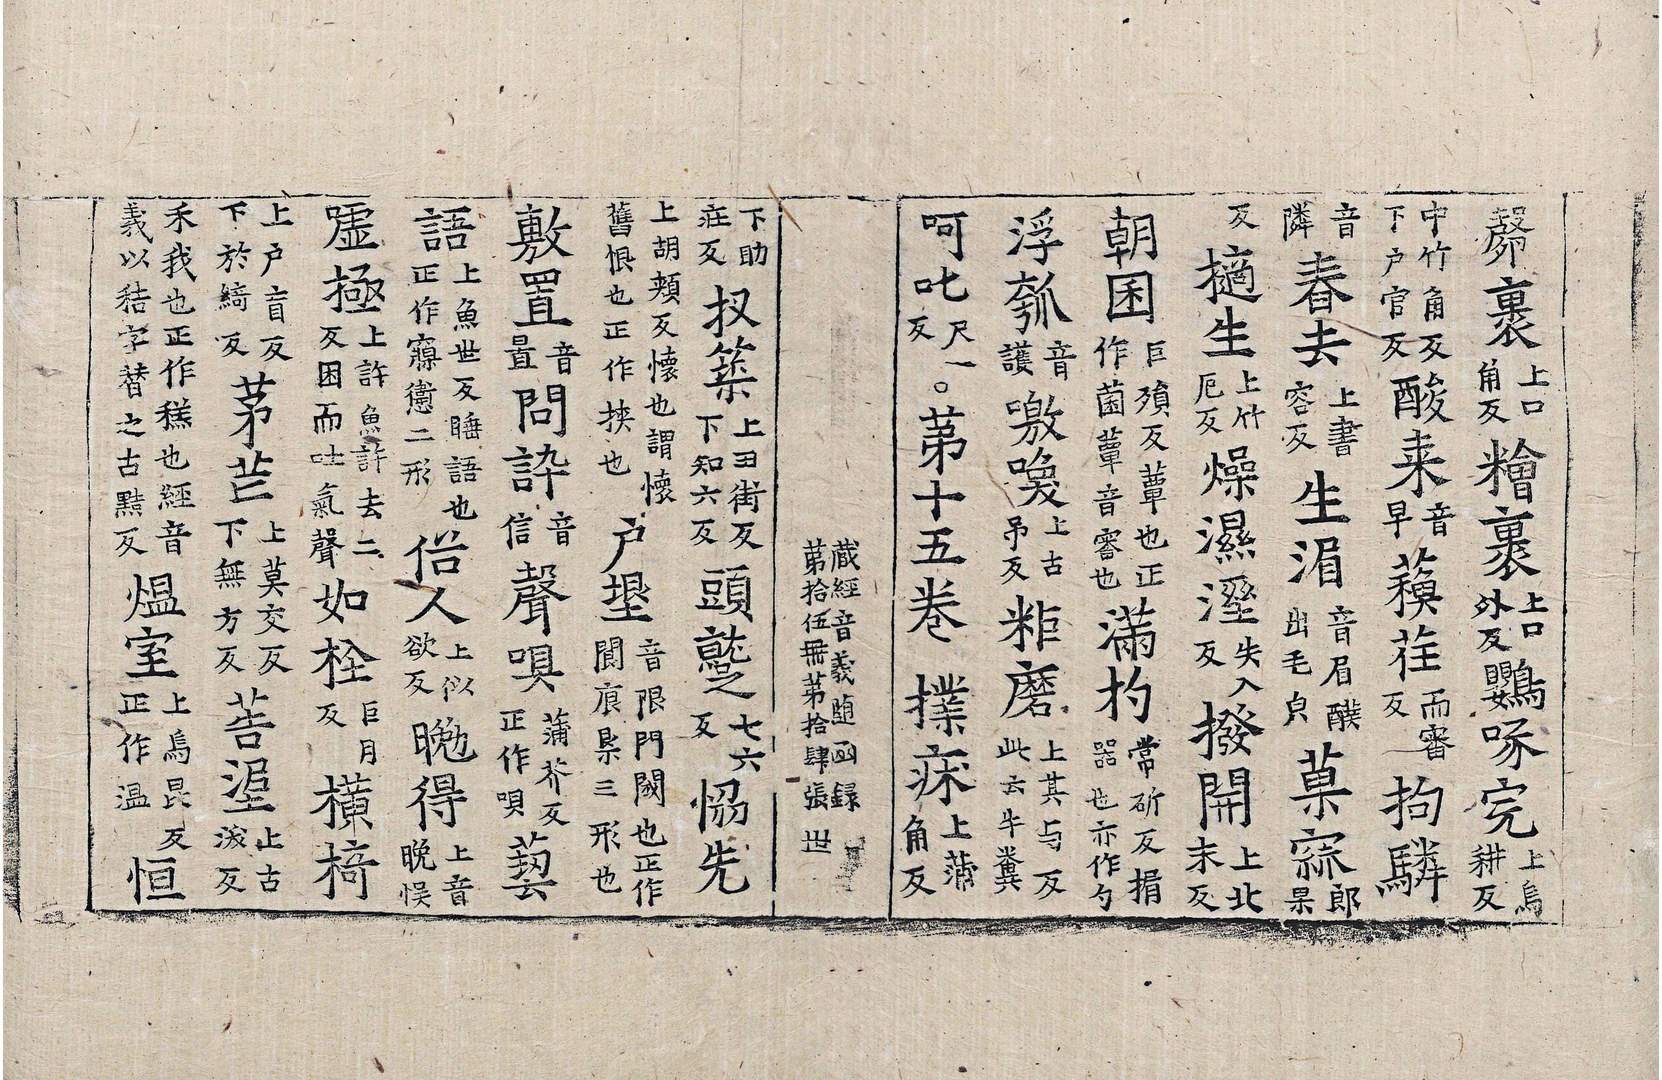 罄裹上口角反糩裹上口外反鸚啄㝈上烏耕反
中竹角反下户官反酸来音早蘱荏而審反拘驎
音隣舂去上書容反生湄音眉醭出毛皃菓𥧌郎果
反擿生上竹厄反燥濕溼失入反撥開上北末反
朝囷巨殞反蕈也正作菌蕈音審也滿杓常斫反捐器也亦作勺
浮瓠音護噭喚上古吊反粔磨上其与反此云牛糞
呵叱尺一反。苐十五卷 撲㾄上蒲角反
藏經音義隨函録第拾伍冊第拾肆張 世
下助疰反扠築上丑街反下知六反頭蹵七六反恊先
上胡頰反懷也謂懷舊恨也正作挾也户垠音限門閾也正作閬痕㮓三形也
敷置音畺問訙音信聲唄蒲芥反正作唄蓺
語上魚世反睡語也正作寱讆二形俗人上似欲反晩得上音晚悮
嘘極上許魚許去二反困而吐氣聲如栓巨月反橫椅
上户盲反下於綺反茅芒上莫交反下無方反菩埿上古汲反
禾我也正作糕也經音義以秸字替之古黠反煴室上烏昆反正作温恒